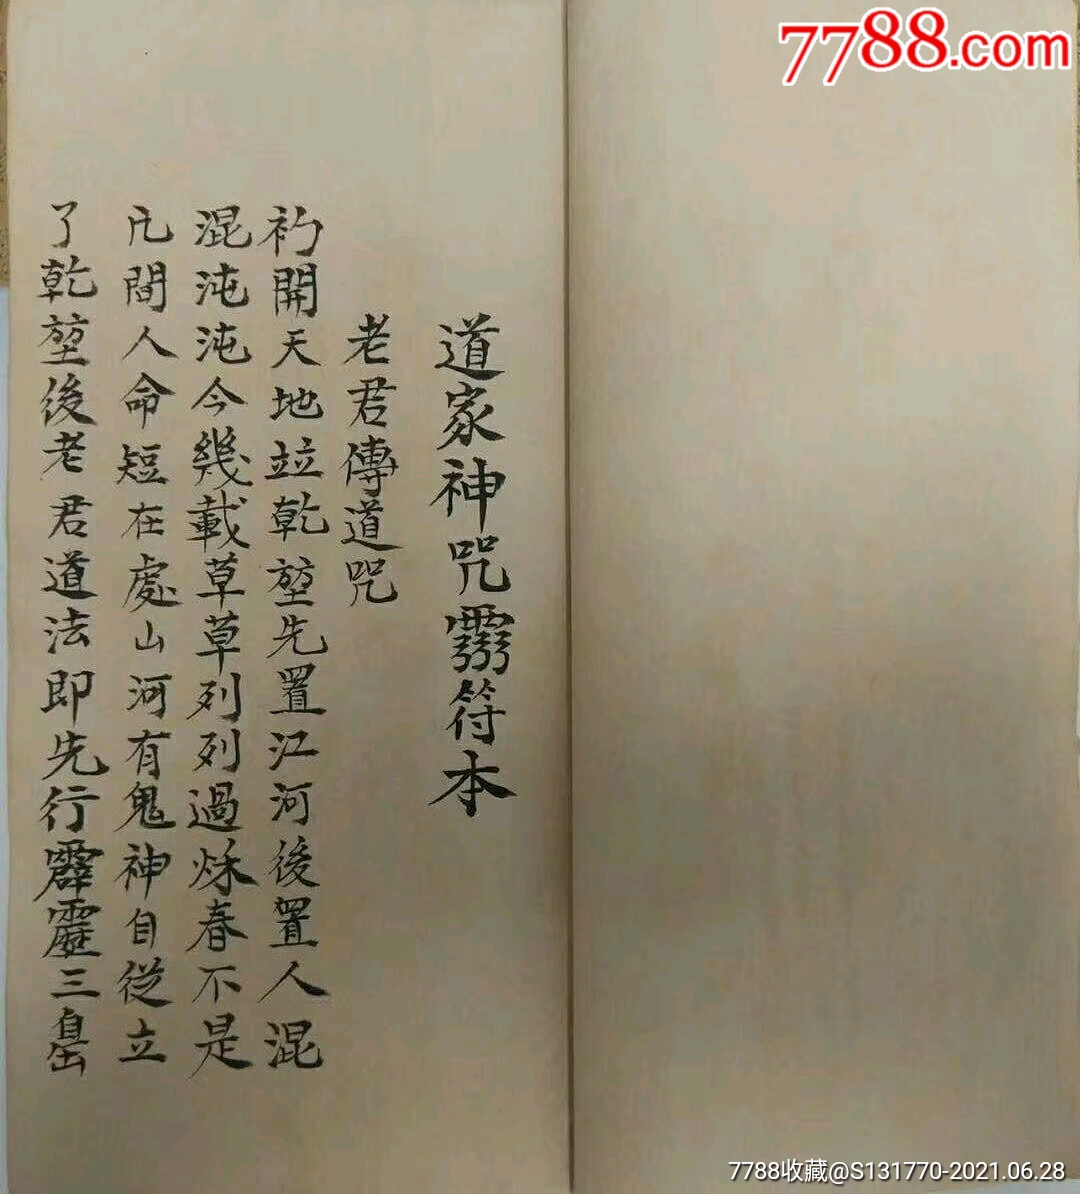 7788.com
道家神咒靈符本
老君傳道咒
初開天地竝乾堃先置江河後置人混
混沌沌今幾載草草列列過秌春不是
凢間人命短在處山河有鬼神自從立
了乾堃後老君道法即先行霹靂三
7788收藏@S131770-2021.06.28